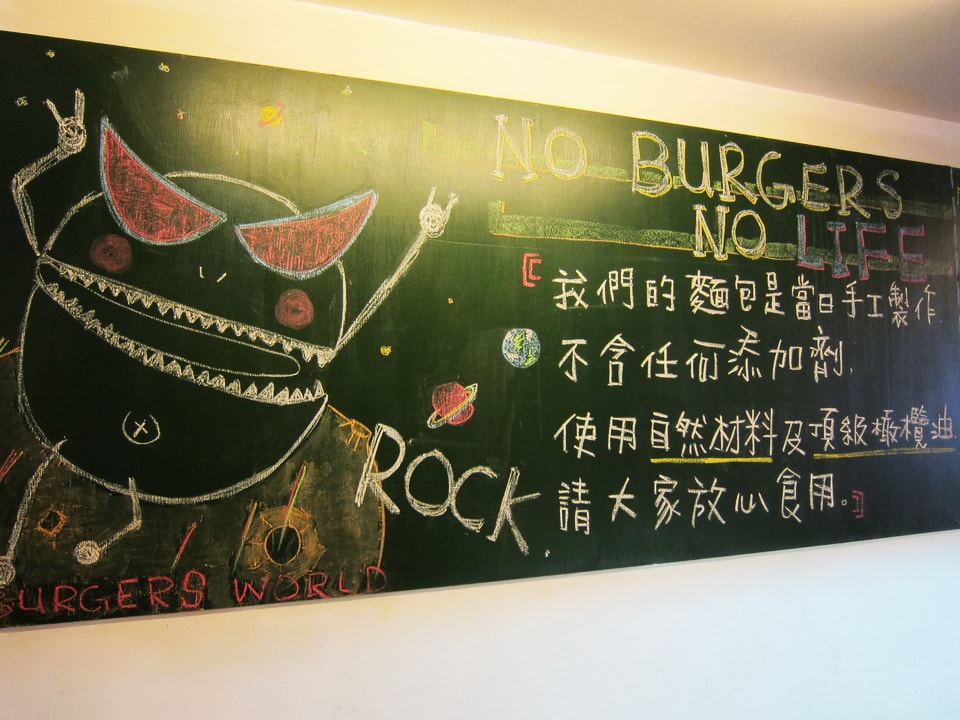 NO BURGERS
NO LIFE
[我們的麵包是當日手工製作,
不含任何添加劑,
使用自然材料及頂級橄欖油.
請大家放心食用。]
ROCK
BURGERS WORLD